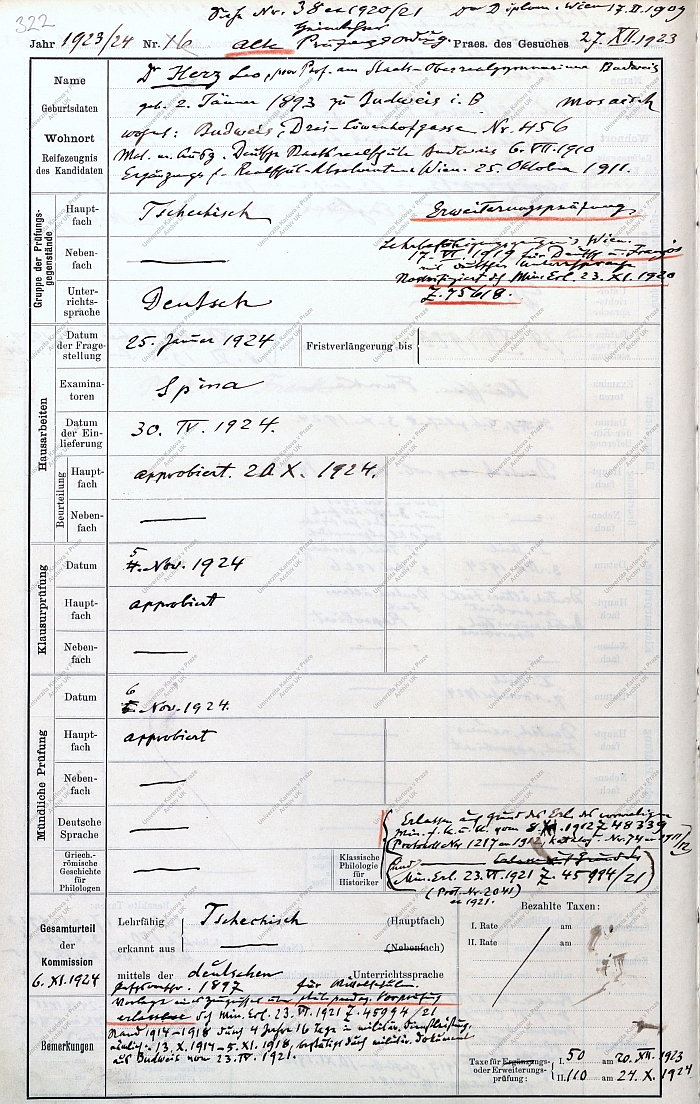 322
Siehe Nr. 38 ex 1920/21 Dr Diplom. Wien 17.II.1909
Jahr 1923/24 Nr. 16 alte Prüfungsordng. Praes. des Gesuches 27. XII. 1923
Name Dr Herz Leo, Prof. am Staats-Oberrealgymnasium Budweis
Geburtsdaten geb. 2. Jänner 1893 zu Budweis i. B mosaisch
Wohnort wohnt: Budweis, Drei-Löwenhofgasse Nr. 456
Reifezeugnis des Kandidaten Mat. m. Ausz. Deutsche Staatsrealschule Budweis 6. VII. 1910
Ergänzungs f. Realschul-Absolventen Wien. 25. Oktober 1911.
Gruppe der Prüfungsgegenstände
Hauptfach Tschechisch Erweiterungsprüfung
Nebenfach — Lehrbefähigungszeugnis Wien.
17. VI. 1919 für Deutsch u. Französ
mit deutscher Unterrichtssprache
Nostrifiziert lt. Min. Erl. 23. XI. 1920
Z. 75618.
Unterrichtssprache Deutsch
Hausarbeiten
Datum der Fragestellung 25. Januar 1924 Fristverlängerung bis
Examinatoren Spina
Datum der Einlieferung 30. IV. 1924.
Beurteilung
Hauptfach approbiert. 20. X. 1924.
Nebenfach —
Klausurprüfung
Datum 5. Nov. 1924
Hauptfach approbiert
Nebenfach —
Mündliche Prüfung
Datum 6. Nov. 1924.
Hauptfach approbiert
Nebenfach —
Deutsche Sprache — Erlassen auf Grund des Erl. des vormaligen
Min. f. K. u. U. vom 8. XI. 1912 Z 48339
(Protokoll Nr 1217 an 1912, Katalog. Nr. 74 an 1911/12
Griech.-römische Geschichte für Philologen — Klassische Philologie für Historiker (und
Min. Erl. 23. VI. 1921 Z. 45994/21)
(Prot. Nr. 2041)
ex 1921.
Gesamturteil der Kommission 6. XI. 1924
Lehrfähig Tschechisch (Hauptfach)
erkannt aus — (Nebenfach)
mittels der deutschen Unterrichtssprache
1897 für Mittelschulen.
Bezahlte Taxen:
I. Rate am
II. Rate am
Bemerkungen
Vorlage eines Zeugnisses über phil. paedag. Vorprüfung
erlassen lt. Min. Erl. 23. VI. 1921 Z. 45994/21
Stand 1914–1918 durch 4 Jahre 16 Tage in militär. Dienstleistung,
13. X. 1914 – 5. XI. 1918, bestätigt durch militär. Dokument
aus Budweis vom 23. IV. 1921.
Taxe für Ergänzungs- oder Erweiterungsprüfung:
I. 50 am 20. XII. 1923
II. 110 am 24. X. 1924
Univerzita Karlova v Praze
Archiv UK